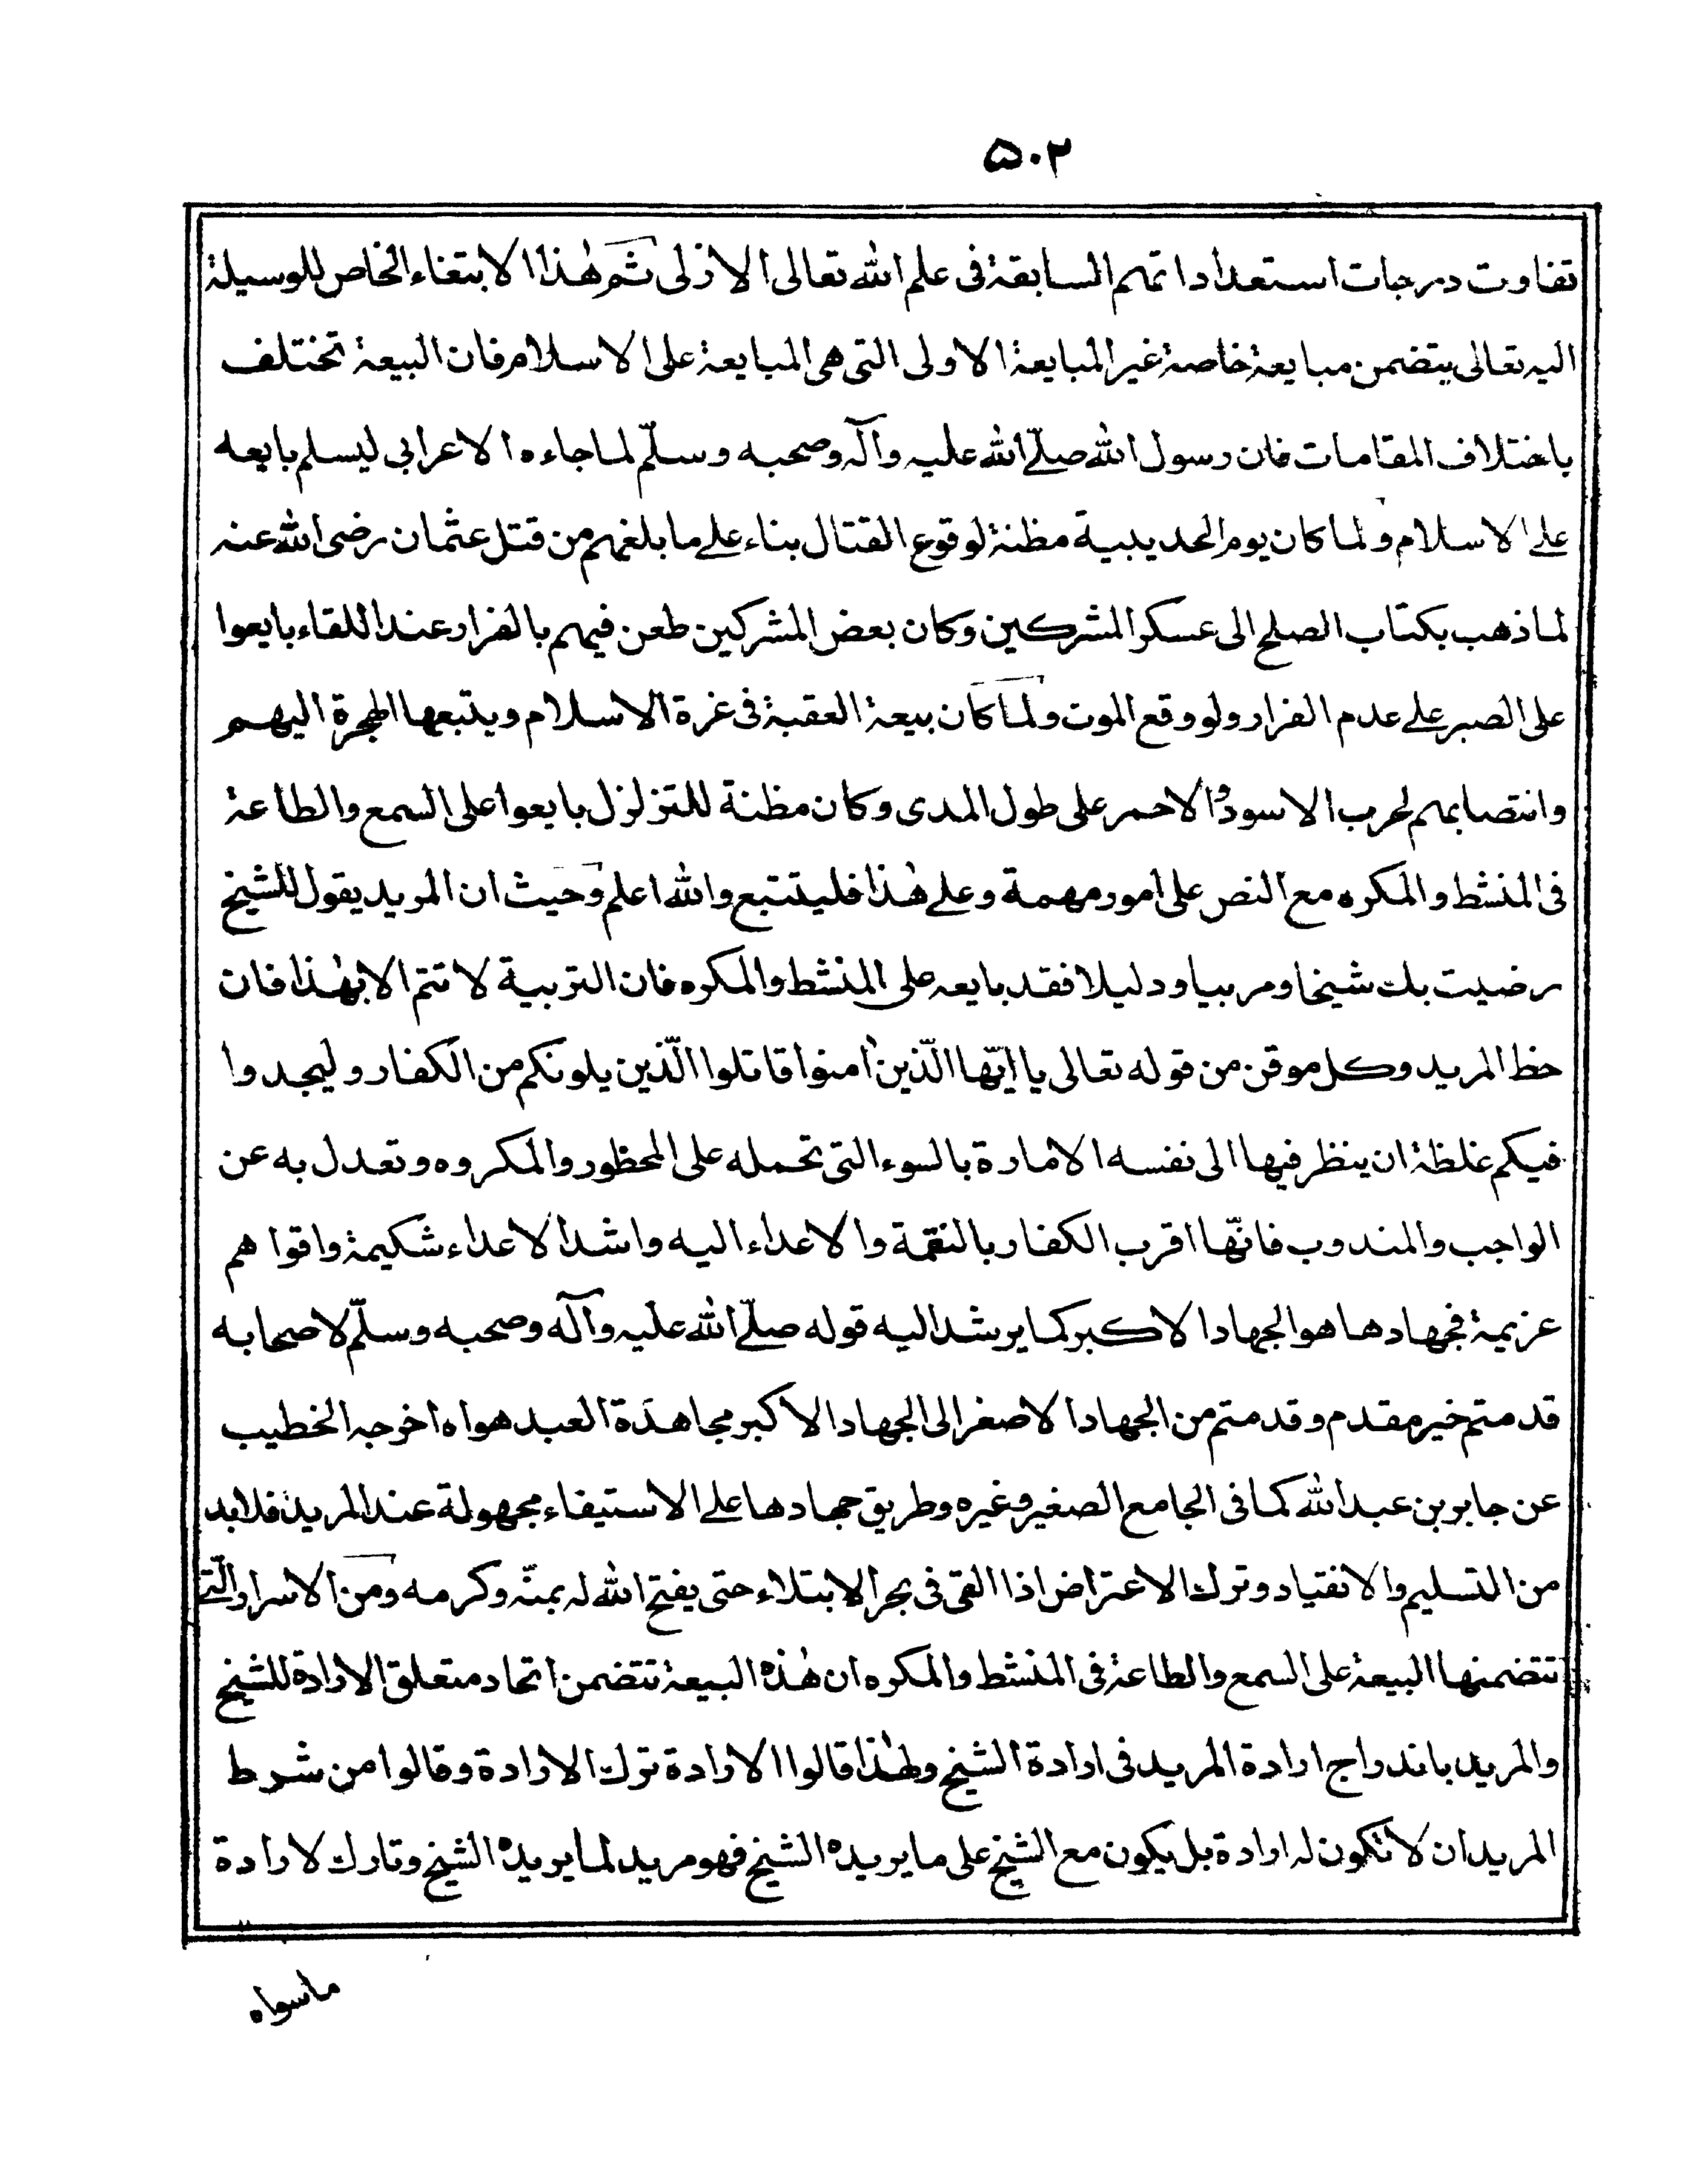 ۵۰۲
تفاوت درجات استعداداتهم السابقة فى علم الله تعالى الازلى ثم هٰذا الابتغاء الخاص للوسيلة
اليه تعالى يتضمن مبايعة خاصة غير المبايعة الاولى التى هى المبايعة على الاسلام فان البيعة تختلف
باختلاف المقامات فان رسول الله صلّى الله عليه وآله وصحبه وسلّم لما جاءه الاعرابى ليسلم بايعه
على الاسلام ولما كان يوم الحديبية مظنة لوقوع القتال بناء على ما بلغهم من قتل عثمان رضى الله عنه
لما ذهب بكتاب الصلح الى عسكر المشركين وكان بعض المشركين طعن فيهم بالفرار عند اللقاء بايعوا
على الصبر على عدم الفرار ولو وقع الموت ولما كان بيعة العقبة فى غرة الاسلام ويتبعها الهجرة اليهم
وانتصابهم لحرب الاسود والاحمر على طول المدى وكان مظنة للتزلزل بايعوا على السمع والطاعة
فى المنشط والمكره مع النص على امور مهمة وعلى هٰذا فليتتبع والله اعلم وحيث ان المريد يقول للشيخ
رضيت بك شيخا ومربيا ودليلا فقد بايعه على المنشط والمكره فان التربية لا تتم الا بهٰذا فان
حظ المريد وكل موقن من قوله تعالى يا ايّها الّذين اٰمنوا قاتلوا الّذين يلونكم من الكفار وليجدوا
فيكم غلظة ان ينظر فيها الى نفسه الامارة بالسوء التى تحمله على المحظور والمكروه وتعدل به عن
الواجب والمندوب فانّها اقرب الكفار بالنقمة والاعداء اليه واشد الاعداء شكيمة واقواهم
عزيمة فجهادها هو الجهاد الاكبر كما يرشد اليه قوله صلّى الله عليه وآله وصحبه وسلّم لاصحابه
قدمتم خير مقدم وقدمتم من الجهاد الاصغر الى الجهاد الاكبر مجاهدة العبد هواه اخرجه الخطيب
عن جابر بن عبد الله كما فى الجامع الصغير وغيره وطريق جهادها على الاستيفاء مجهولة عند المريد فلابد
من التسليم والانقياد وترك الاعتراض اذا القى فى بحر الابتلاء حتى يفتح الله له بمنّه وكرمه ومن الاسرار الّتى
تتضمنها البيعة على السمع والطاعة فى المنشط والمكره ان هٰذه البيعة تتضمن اتحاد متعلق الارادة للشيخ
والمريد باندراج ارادة المريد فى ارادة الشيخ ولهٰذا قالوا الارادة ترك الارادة وقالوا من شرط
المريد ان لا تكون له ارادة بل يكون مع الشيخ على ما يريده الشيخ فهو مريد لما يريده الشيخ وتارك لارادة
ماسواه